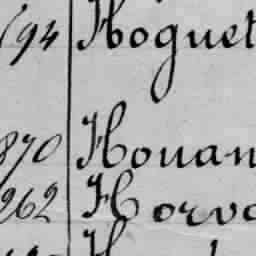 194 Hoguet
870 Houan
262 Horvo